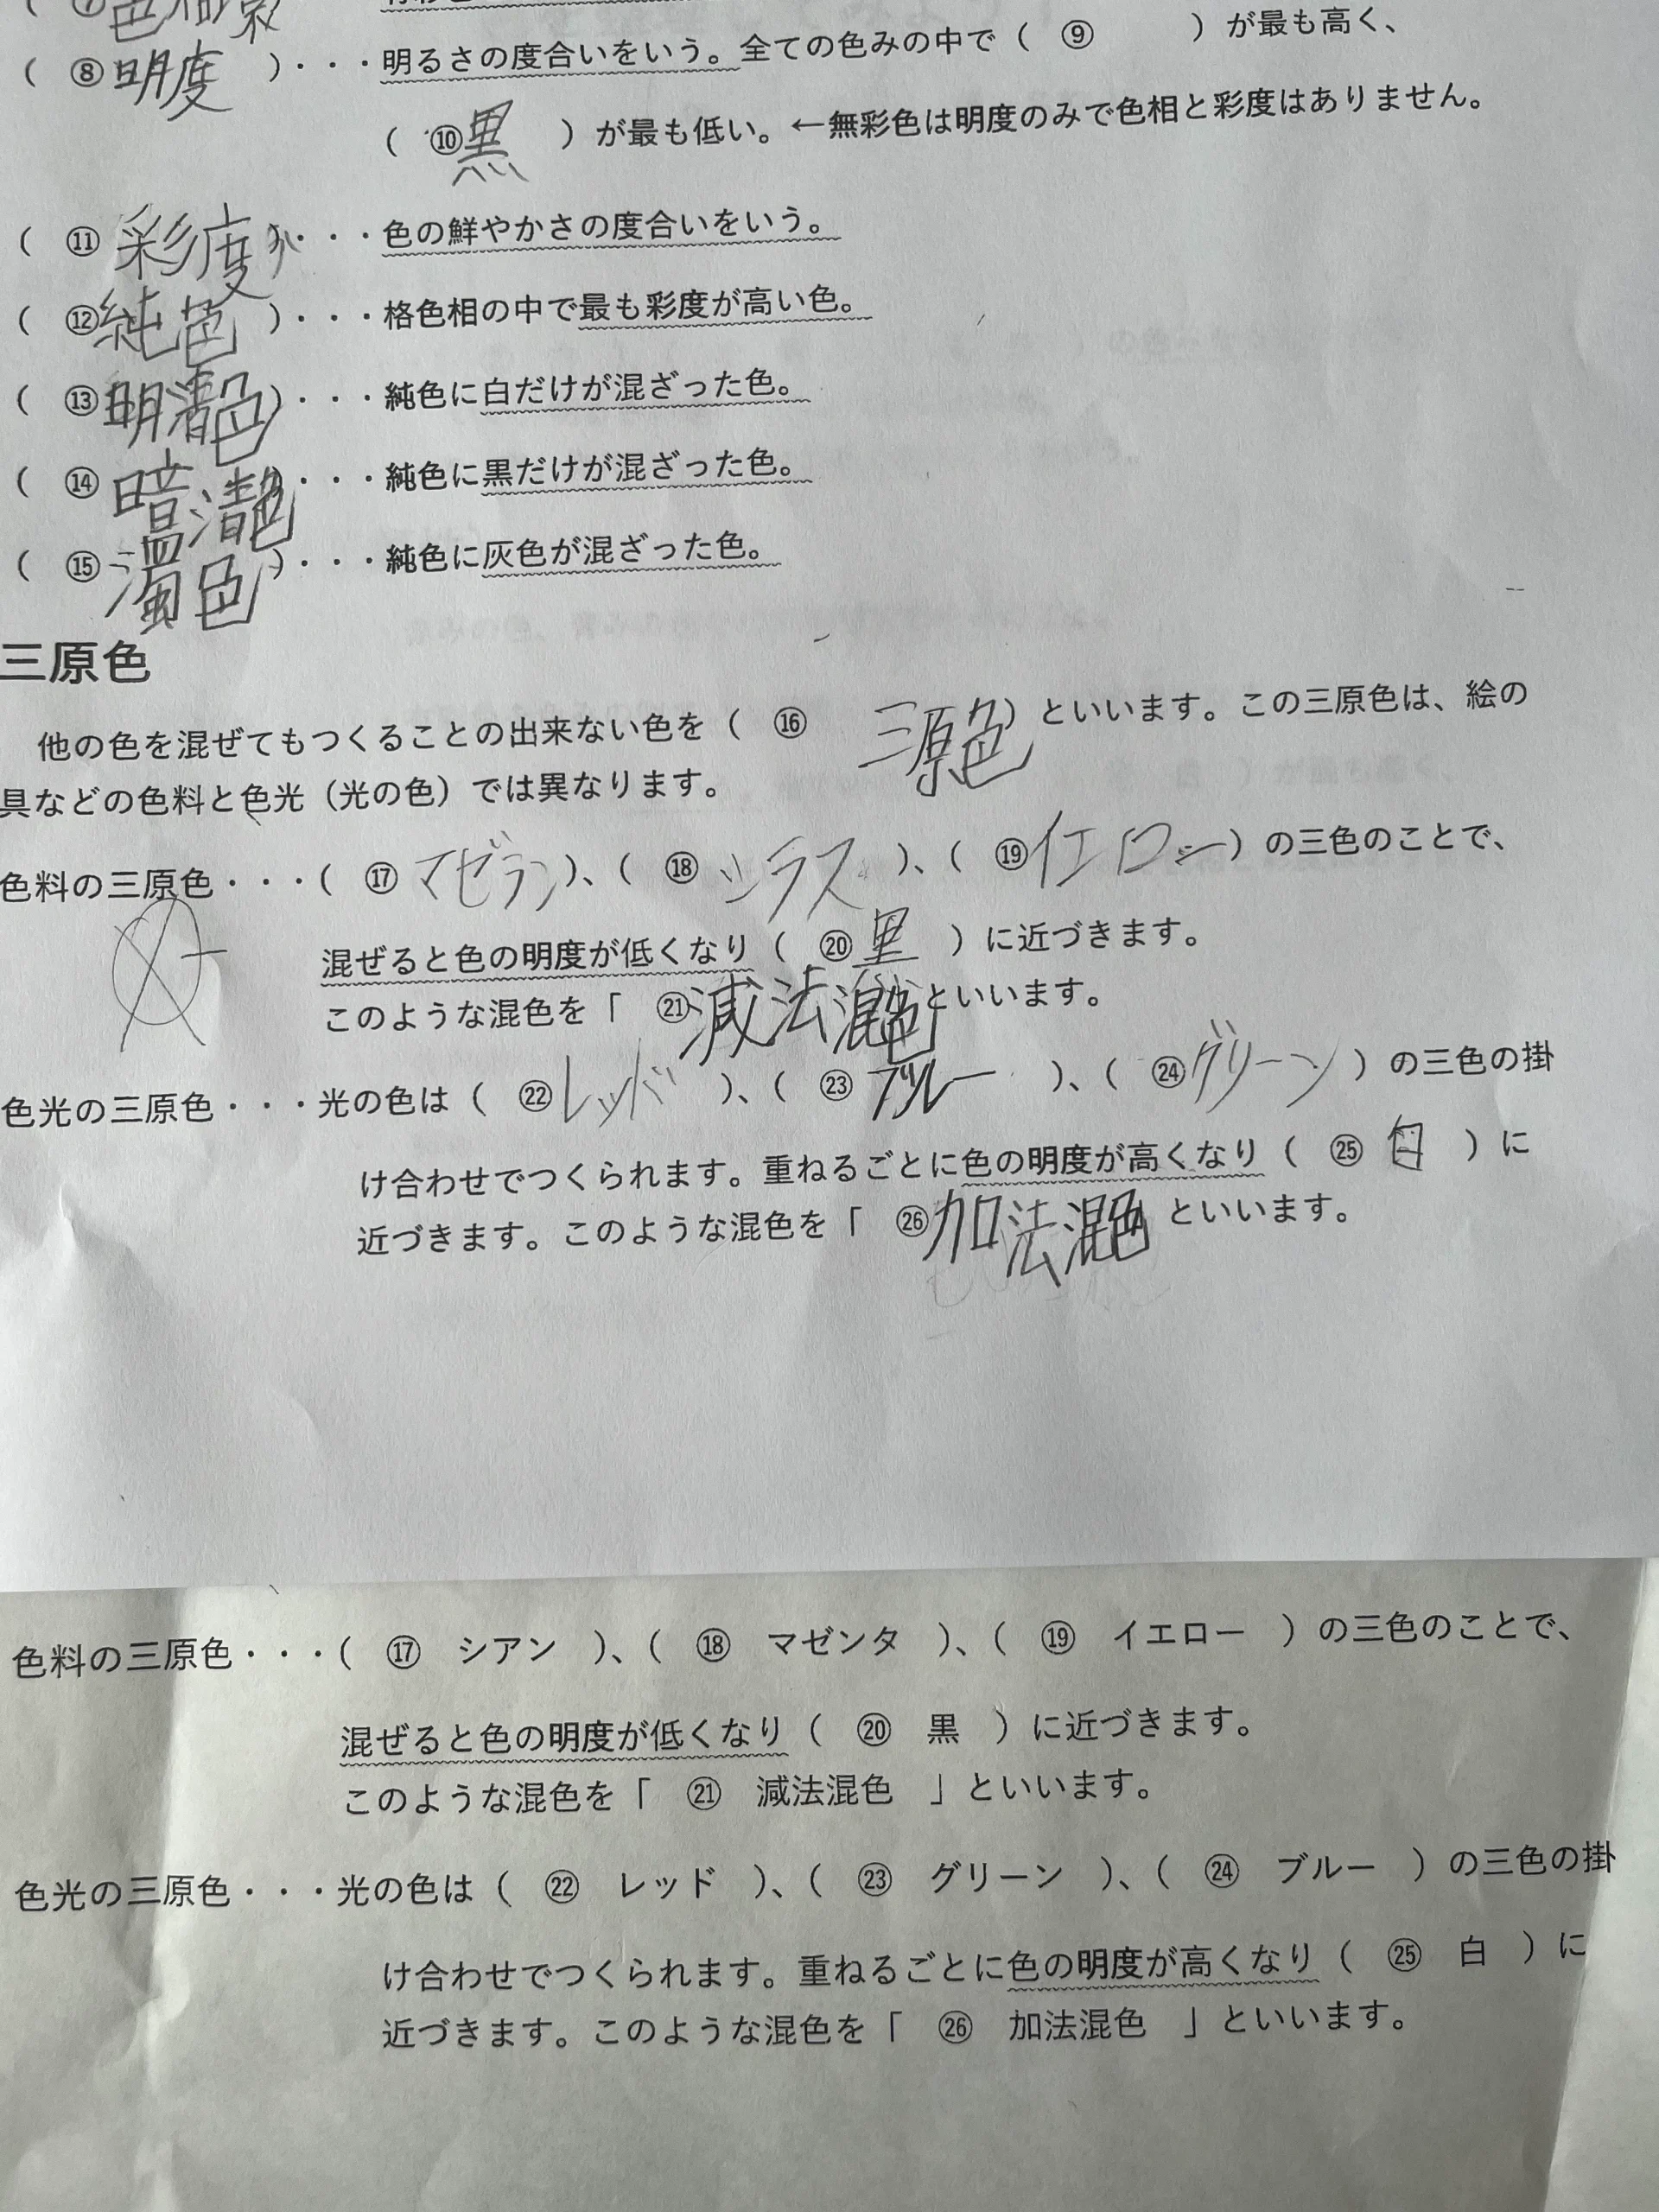 ( ⑦色相環
( ⑧明度 )・・・明るさの度合いをいう。全ての色みの中で( ⑨ )が最も高く、
( ⑩黒 )が最も低い。←無彩色は明度のみで色相と彩度はありません。
( ⑪彩度 )・・・色の鮮やかさの度合いをいう。
( ⑫純色 )・・・格色相の中で最も彩度が高い色。
( ⑬明清色)・・・純色に白だけが混ざった色。
( ⑭暗清色)・・・純色に黒だけが混ざった色。
( ⑮濁色 )・・・純色に灰色が混ざった色。
三原色
他の色を混ぜてもつくることの出来ない色を( ⑯ 三原色)といいます。この三原色は、絵の
具などの色料と色光（光の色）では異なります。
色料の三原色・・・( ⑰ マゼラン)、( ⑱ シラス )、( ⑲イエロー)の三色のことで、
混ぜると色の明度が低くなり( ⑳ 黒 )に近づきます。
このような混色を「 ㉑減法混色といいます。
色光の三原色・・・光の色は( ㉒レッド )、( ㉓ ブルー )、( ㉔グリーン )の三色の掛
け合わせでつくられます。重ねるごとに色の明度が高くなり( ㉕ 白 )に
近づきます。このような混色を「 ㉖加法混色といいます。
色料の三原色・・・( ⑰ シアン )、( ⑱ マゼンタ )、( ⑲ イエロー )の三色のことで、
混ぜると色の明度が低くなり( ⑳ 黒 )に近づきます。
このような混色を「 ㉑ 減法混色 」といいます。
色光の三原色・・・光の色は( ㉒ レッド )、( ㉓ グリーン )、( ㉔ ブルー )の三色の掛
け合わせでつくられます。重ねるごとに色の明度が高くなり( ㉕ 白 )に
近づきます。このような混色を「 ㉖ 加法混色 」といいます。